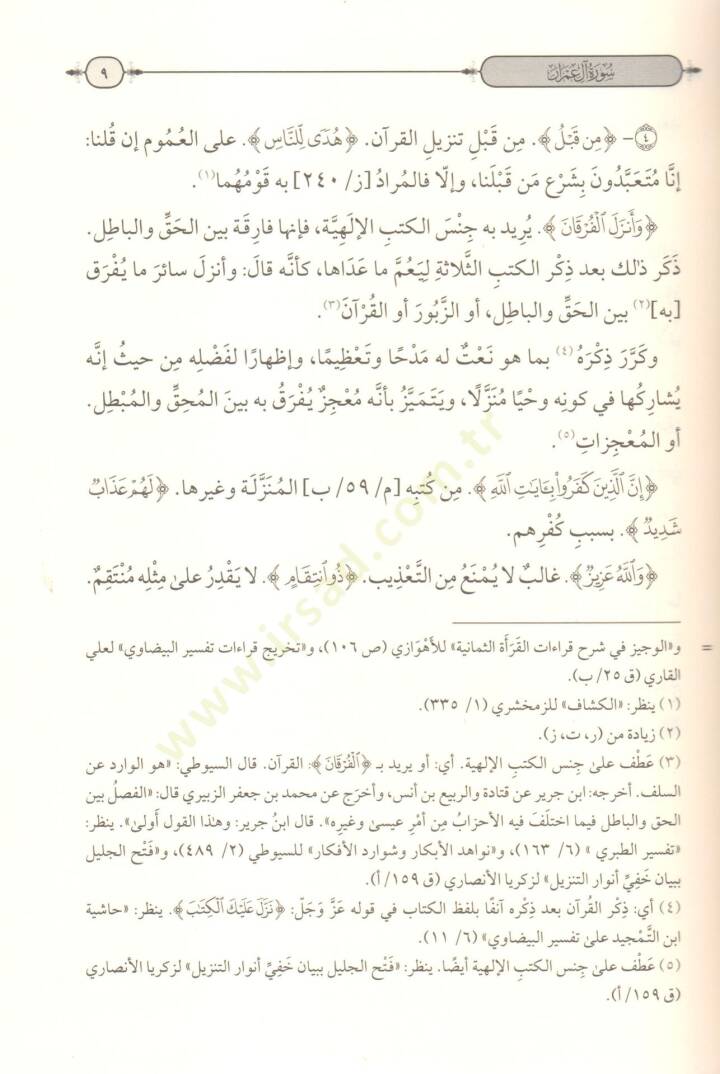 سُورَةُ آلِ عِمْرَانَ
٩
(٤)- ﴿مِن قَبْلُ﴾. مِن قَبْلِ تنزيلِ القرآن. ﴿هُدًى لِّلنَّاسِ﴾. على العُمُومِ إن قُلنا:
إنَّا مُتَعَبَّدُونَ بِشَرْعِ مَن قَبْلَنا، وإلّا فالمُرادُ [ز/ ٢٤٠] به قَوْمُهُما(١).
﴿وَأَنزَلَ الْفُرْقَانَ﴾. يُرِيد به جِنْسَ الكتبِ الإلَهِيَّة، فإنها فارِقَة بين الحَقِّ والباطِل.
ذَكَر ذٰلك بعد ذِكْر الكتبِ الثَّلاثةِ لِيَعُمَّ ما عَدَاها، كأنَّه قالَ: وأنزلَ سائرَ ما يُفْرَق
[به](٢) بين الحَقِّ والباطِل، أو الزَّبُورَ أو القُرْآنَ(٣).
وكَرَّرَ ذِكْرَهُ(٤) بما هو نَعْتٌ له مَدْحًا وتَعْظِيمًا، وإظهارًا لفَضْلِه مِن حيثُ إنَّه
يُشارِكُها في كونِه وحْيًا مُنَزَّلًا، ويَتَمَيَّزُ بأنَّه مُعْجِزٌ يُفْرَقُ به بينَ المُحِقِّ والمُبْطِل.
أو المُعْجِزاتِ(٥).
﴿إِنَّ الَّذِينَ كَفَرُوا بِـَٔايَاتِ اللَّهِ﴾. مِن كُتبِه [م/ ٥٩/ ب] المُنَزَّلَة وغيرها. ﴿لَهُمْ عَذَابٌ
شَدِيدٌ﴾. بسببِ كُفْرِهم.
﴿وَاللَّهُ عَزِيزٌ﴾. غالبٌ لا يُمْنَعُ مِن التَّعْذِيب. ﴿ذُو انتِقَامٍ﴾. لا يَقْدِرُ علىٰ مِثْلِه مُنْتَقِمٌ.
= و«الوجيز في شرح قراءات القَرَأَة الثمانية» للأهْوازي (ص ١٠٦)، و«تخريج قراءات تفسير البيضاوي» لعلي
القاري (ق ٢٥/ ب).
(١) ينظر: «الكشاف» للزمخشري (١/ ٣٣٥).
(٢) زيادة من (ر، ت، ز).
(٣) عَطْف علىٰ جنس الكتبِ الإلهية. أي: أو يريد بـ ﴿الْفُرْقَانَ﴾: القرآن. قال السيوطي: «هو الوارد عن
السلف. أخرجه: ابن جرير عن قتادة والربيع بن أنس، وأخرَج عن محمد بن جعفر الزبيري قال: «الفصلُ بين
الحق والباطل فيما اختلَفَ فيه الأحزابُ مِن أمْرِ عيسىٰ وغيرِه». قال ابنُ جرير: وهٰذا القول أولىٰ». ينظر:
«تفسير الطبري » (٦/ ١٦٣)، و«نواهد الأبكار وشوارد الأفكار» للسيوطي (٢/ ٤٨٩)، و«فَتْح الجليل
ببيان خَفِيِّ أنوار التنزيل» لزكريا الأنصاري (ق ١٥٩/ أ).
(٤) أي: ذِكْر القُرآن بعد ذِكْرِه آنفًا بلفظ الكتاب في قوله عَزَّ وَجَلّ: ﴿نَزَّلَ عَلَيْكَ الْكِتَابَ﴾. ينظر: «حاشية
ابن التَّمْجِيد علىٰ تفسير البيضاوي» (٦/ ١١).
(٥) عَطْف علىٰ جنس الكتب الإلهية أيضًا. ينظر: «فَتْح الجليل ببيان خَفِيِّ أنوار التنزيل» لزكريا الأنصاري
(ق ١٥٩/ أ).
www.irsad.com.tr